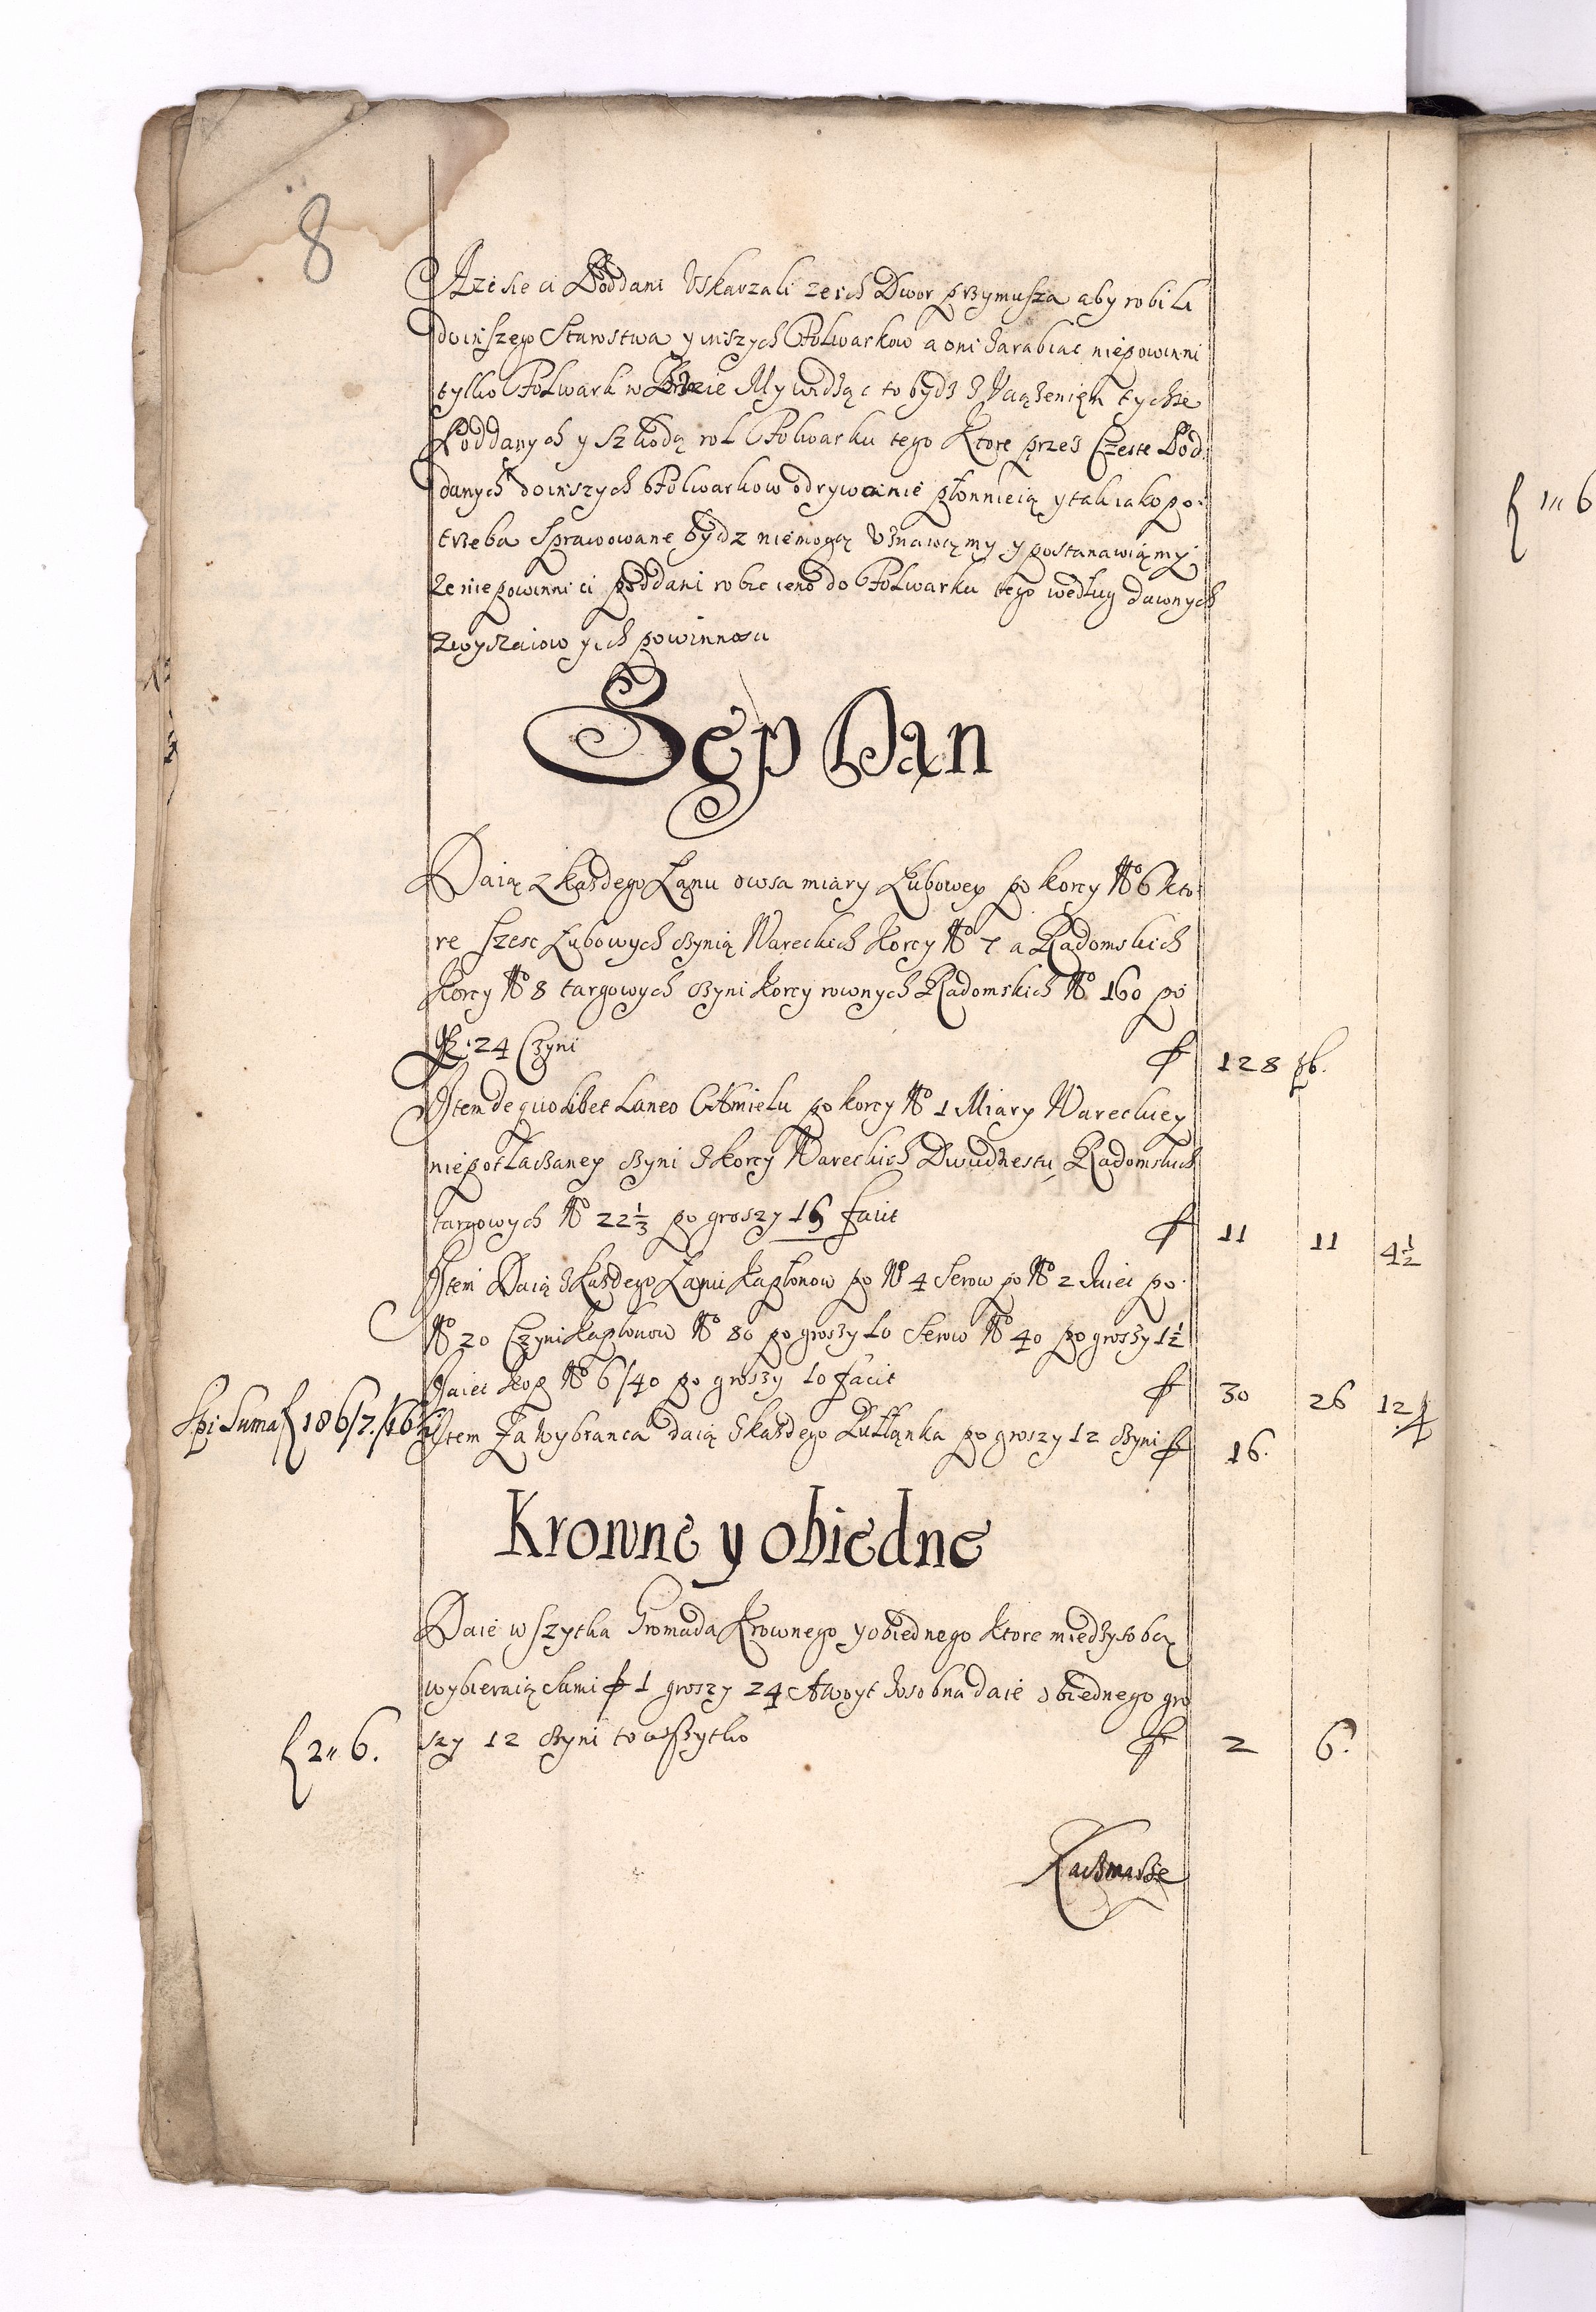 8
A ze sie ci Poddani Uskarzali ze ich Dwor przymusza aby robili
do inszego Starostwa y inszych Folwarkow a oni zarabiac niepowinni
tylko Folwark w My widząc to bydz z Uciązeniem tychze
Poddanych y szkodą rol Folwarku tego Ktore przez Czeste Pod:
danych do inszych Folwarkow odrywanie płonnieią y tak iako po:
trzeba sprawowane bydz niemogą Uznawamy y postanawiamy
Ze niepowinni ci poddani robic ieno do Folwarku tego według dawnych
zwyczaiow y ich powinnosci
Sep Dan
Daią z kazdego Łanu owsa miary Łubowey po korcy No 6 kto:
re szesc Łubowych czynią Wareckich Korcy No 7 a Radomskich
Korcy No 8 targowych czyni korcy rownych Radomskich No 160 po
gr: 24 Czyni f 128 gb.
Item de quolibet Laneo Chmielu po korcy No 1 Miary Wareckiey
niepotłaczaney czyni z korcy Wareckich Dwudziestu Radomskich
targowych No 22 1/3 po groszy 16 facit f 11 11 4 1/2
Item Daią z Kazdego Łanu Kapłonow po No 4 Serow po No 2 Jaiec po
No 20 Czyni Kapłonow No 80 po groszy 10 Serow No 40 po groszy 1 1/2
Jaiec kop No 6/40 po groszy 10 facit f 30 26 12
Suma f 186/7./16
Item Za Wybranca daią z kazdego Pułłanka po groszy 12 czyni f 16.
Krowne y obiedne
Daie wszytka Gromada Krownego y obiednego Ktore miedzy sobą
wybieraią sami f 1 groszy 24 A woyt zosobna daie obiednego gro
szy 12 czyni to wszytko f 2 6.
f 2 " 6.
Kaczmarze
f 1 " 6